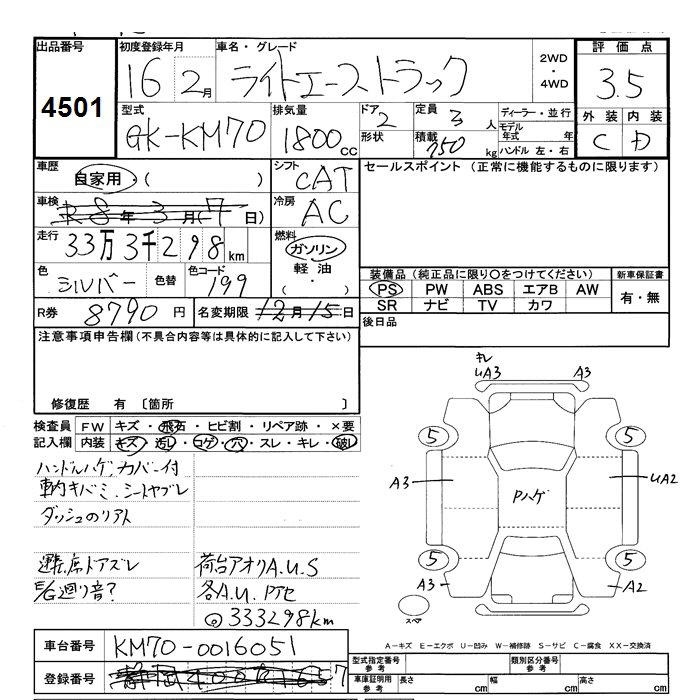 出品番号 初度登録年月 車名・グレード 2WD ・ 4WD 評価点
4501 16 2月 ライトエーストラック 3.5
型式 排気量 ドア 定員 ディーラー・並行 外装 内装
GK-KM70 1800cc 2 3人 モデル年式 年 C D
形状 積載 750kg ハンドル 左・右
車歴 自家用・( ) シフト CAT セールスポイント (正常に機能するものに限ります)
車検 R8年3月(7日) 冷房 AC
走行 33万3千298km 燃料 ガソリン
軽油
( ・ )
色 シルバー 色替 色コード 199
装備品 (純正品に限り○をつけてください) 新車保証書
PS PW ABS エアB AW 有・無
SR ナビ TV カワ
R券 8790円 名変期限 12月15日 後日品
注意事項申告欄(不具合内容等は具体的に記入して下さい)
修復歴 有 〔箇所 〕
検査員 FW キズ・飛石・ヒビ割・リペア跡・×要
記入欄 内装 キズ・汚レ・コゲ・穴・スレ・キレ・破レ
ハンドルハゲカバー付
車内キバミ、シートヤブレ
ダッシュのリアト
運転席ドアズレ 荷台アオリA.U.S
E/G廻り音? 各A.U.Pアセ
◎333298km
キレ
UA3 A3
5 5
A3 Pハゲ UA2
5 5
A3 A2
スペア
A-キズ E-エクボ U-凹み W-補修跡 S-サビ C-腐食 XX-交換済
車台番号 KM70-0016051
型式指定番号 参考 類別区分番号 参考
登録番号 静岡400
車庫証明用 参考 長さ cm 幅 cm 高さ cm